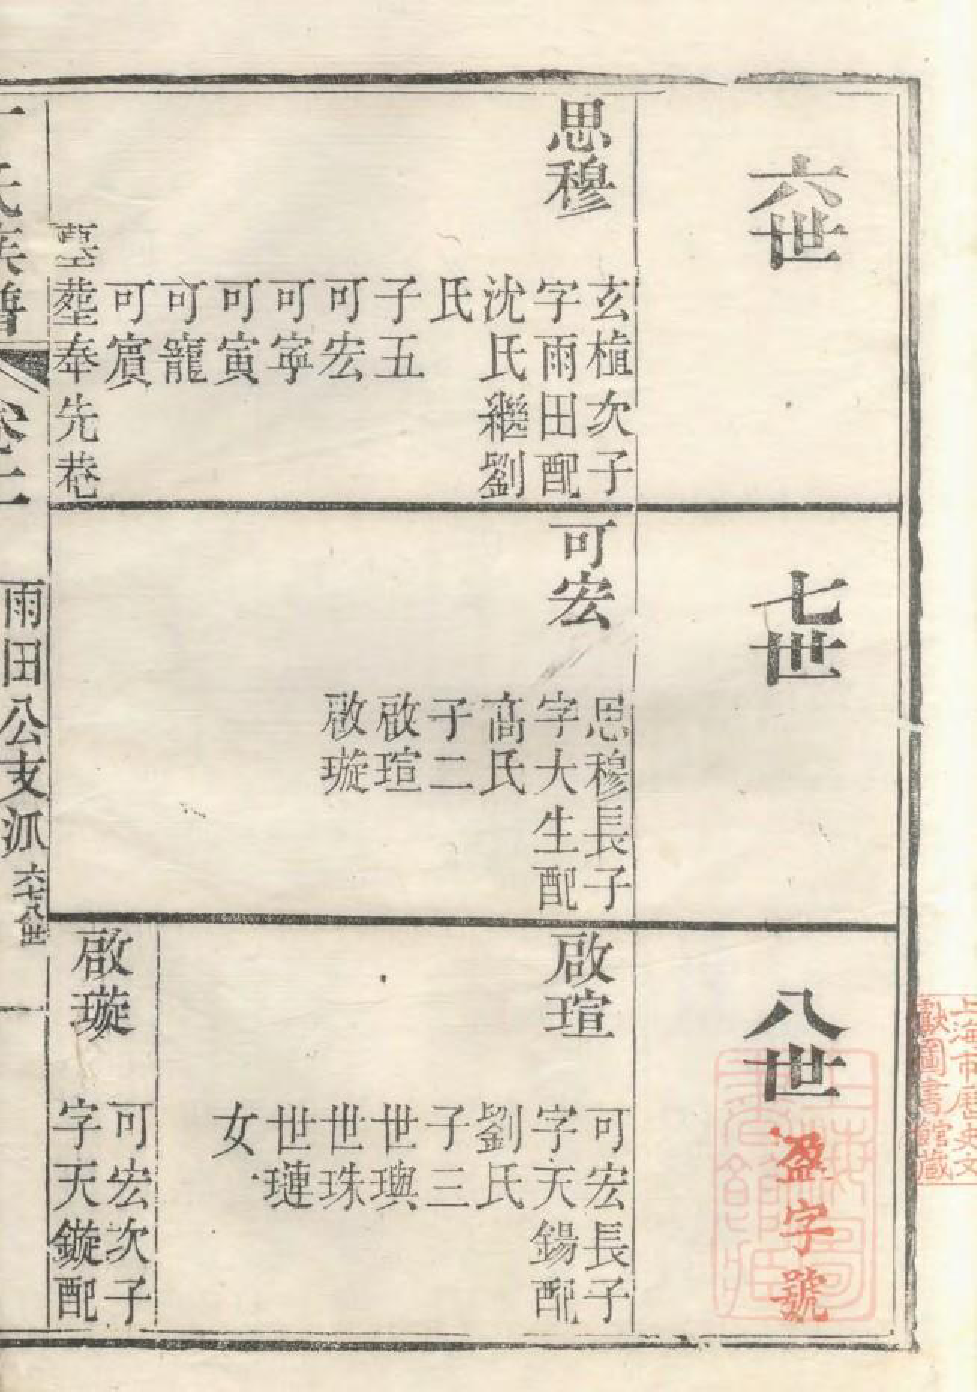 六世
思穆
玄植次子
字雨田配
沈氏繼劉
氏
子五
可宏
可寧
可寅
可寵
可賔
墓塟奉先菴
七世
可宏
思穆長子
字大生配
高氏
子二
啟瑄
啟璇
八世
啟瑄
可宏長子
字天錫配
劉氏
子三
世璵
世珠
世璉
女
啟璇
可宏次子
字天鏇配
氏族譜
雨田公支派
六七八世
一
盈字號
上海市歷史文
獻圖書館藏